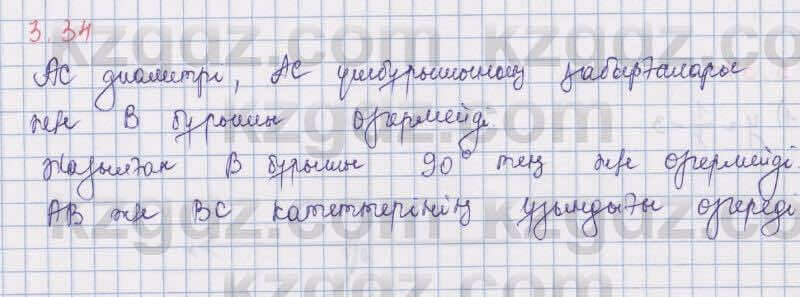 3.34
АС диаметрі, АС үшбұрышының қабырғалары
және В бұрышы өзгермейді.
Жазылған В бұрышы 90° тең және өзгермейді
АВ және ВС катеттерінің ұзындығы өзгереді
kzgdz.com